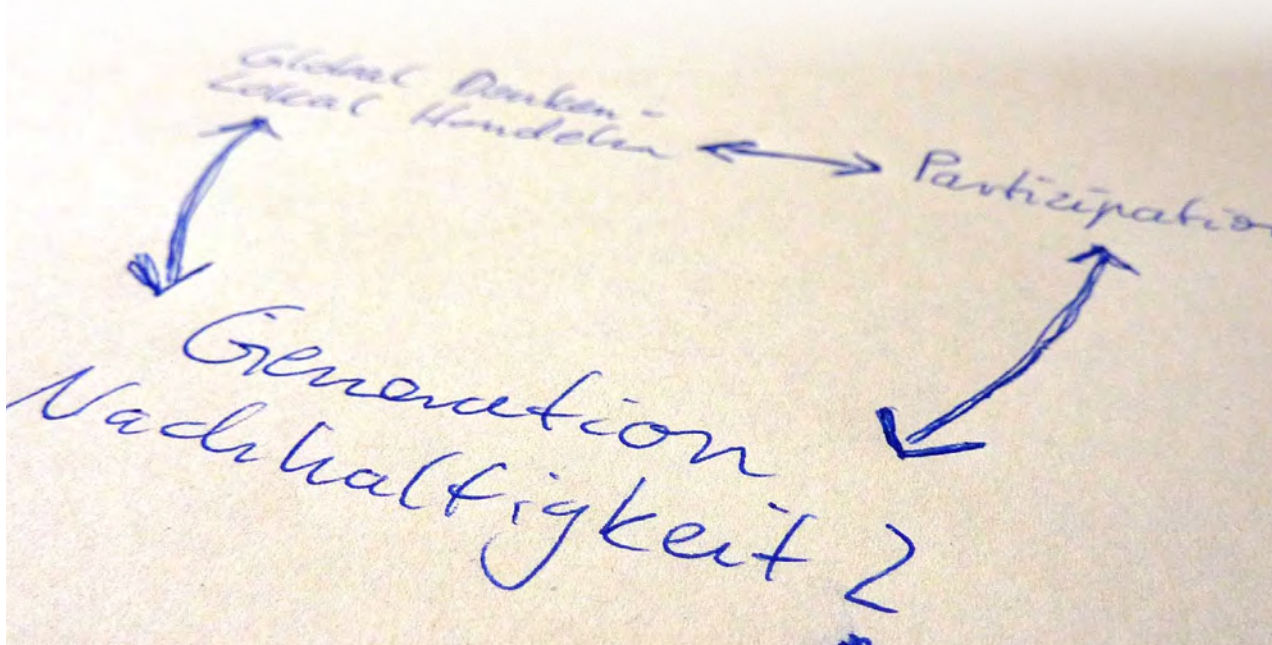 Global Denken -
Lokal Handeln
Partizipation
Generation
Nachhaltigkeit ?